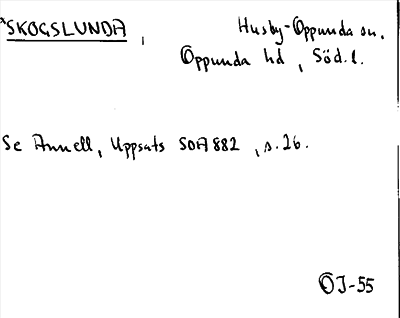 *SKOGSLUNDA, Husby-Oppunda sn.
Oppunda hd, Söd.l.
Se Annell, Uppsats SOA 882, s. 26.
ÖJ-55